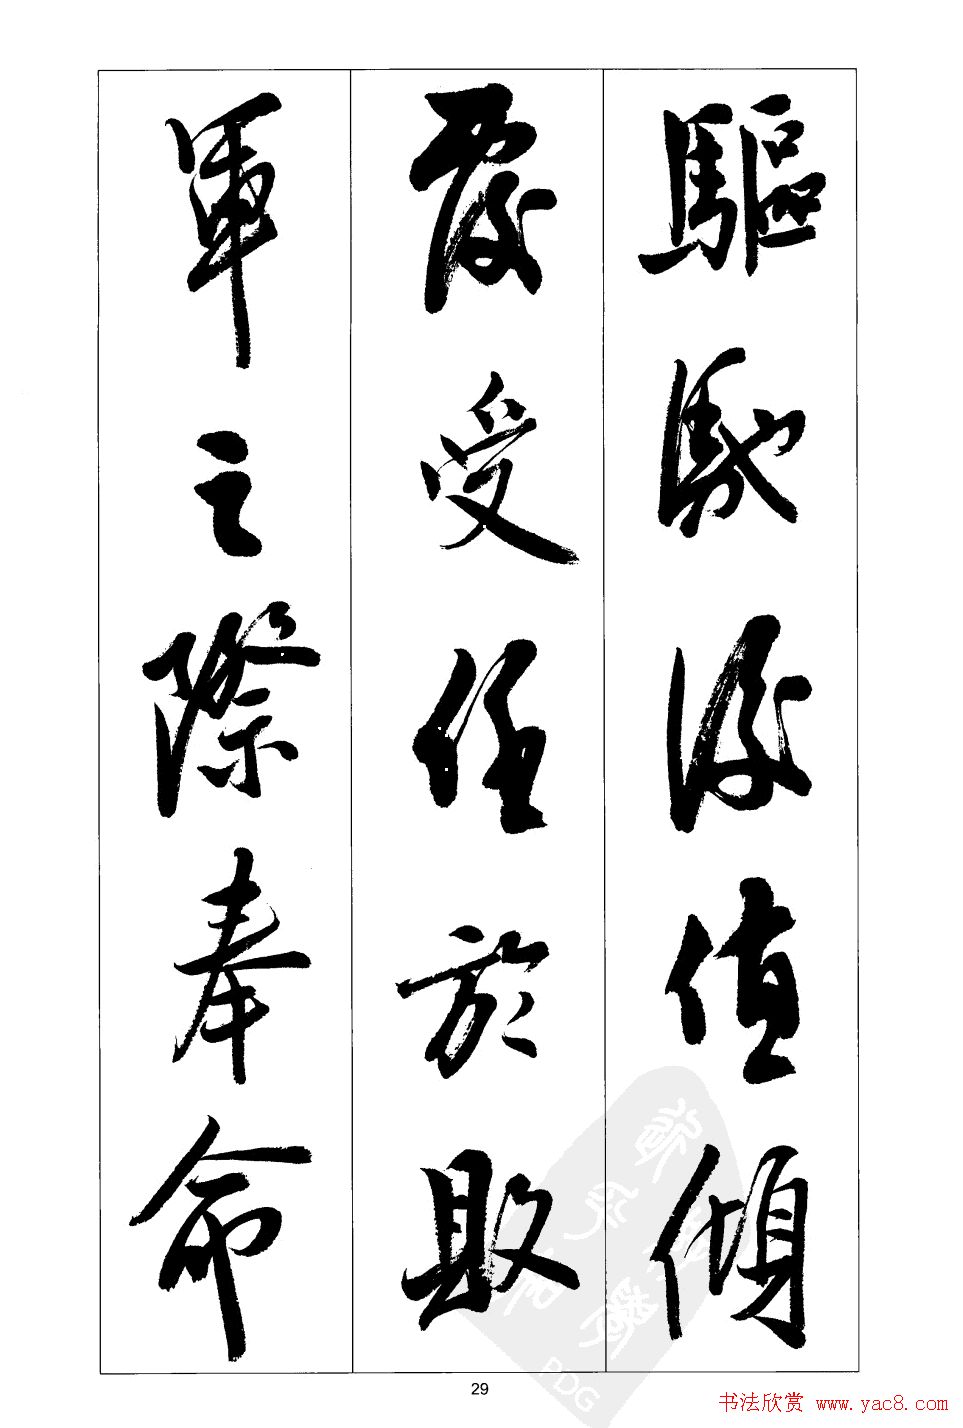 驅馳後值傾
覆受任於敗
軍之際奉命
29
PDG
书法欣赏 www.yac8.com